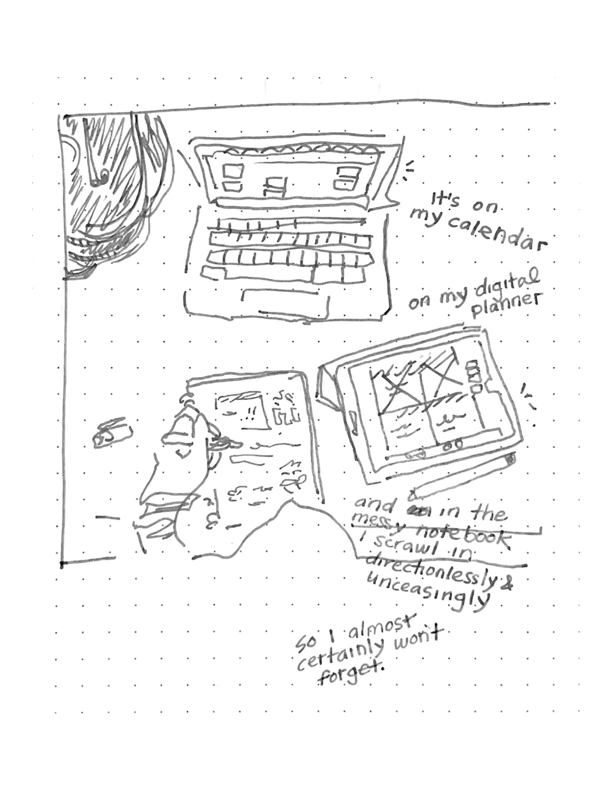 It's on
my calendar
on my digital
planner
and in the
messy notebook
i scrawl in
directionlessly &
unceasingly
so i almost
certainly won't
forget.